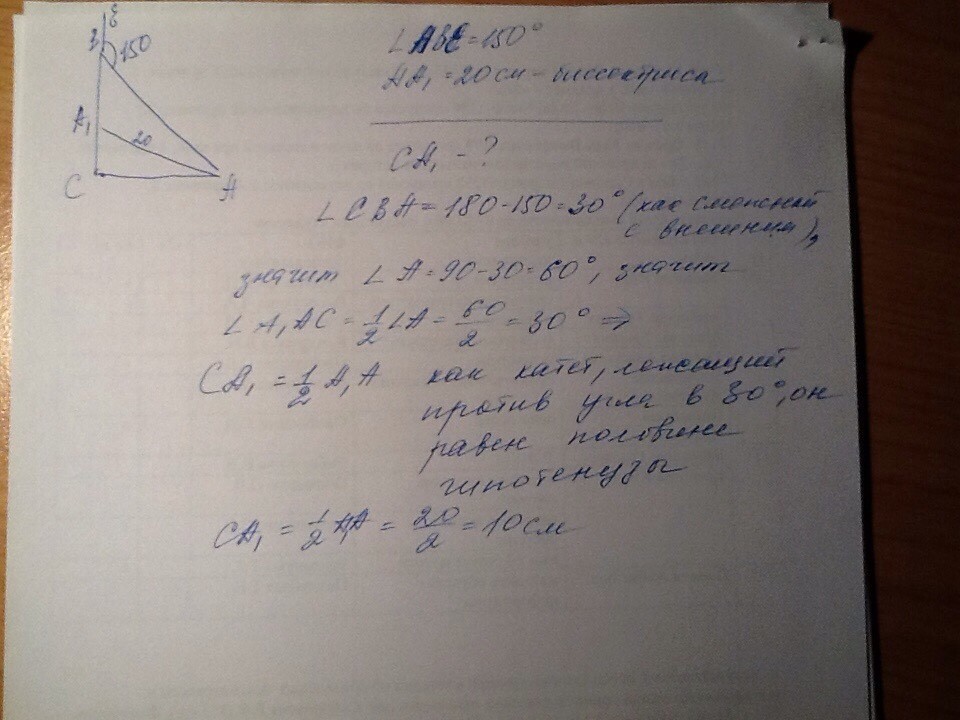 E
B 150
A₁
20
C
A
∠ABE = 150°
AA₁ = 20 см - биссектриса
CA₁ - ?
∠CBA = 180 - 150 = 30° (как смежный
с внешним),
значит ∠A = 90 - 30 = 60°, значит
∠A₁AC = 1/2 ∠A = 60/2 = 30° ⇒
CA₁ = 1/2 A₁A как катет, лежащий
против угла в 30°, он
равен половине
гипотенузы
CA₁ = 1/2 A₁A = 20/2 = 10 см